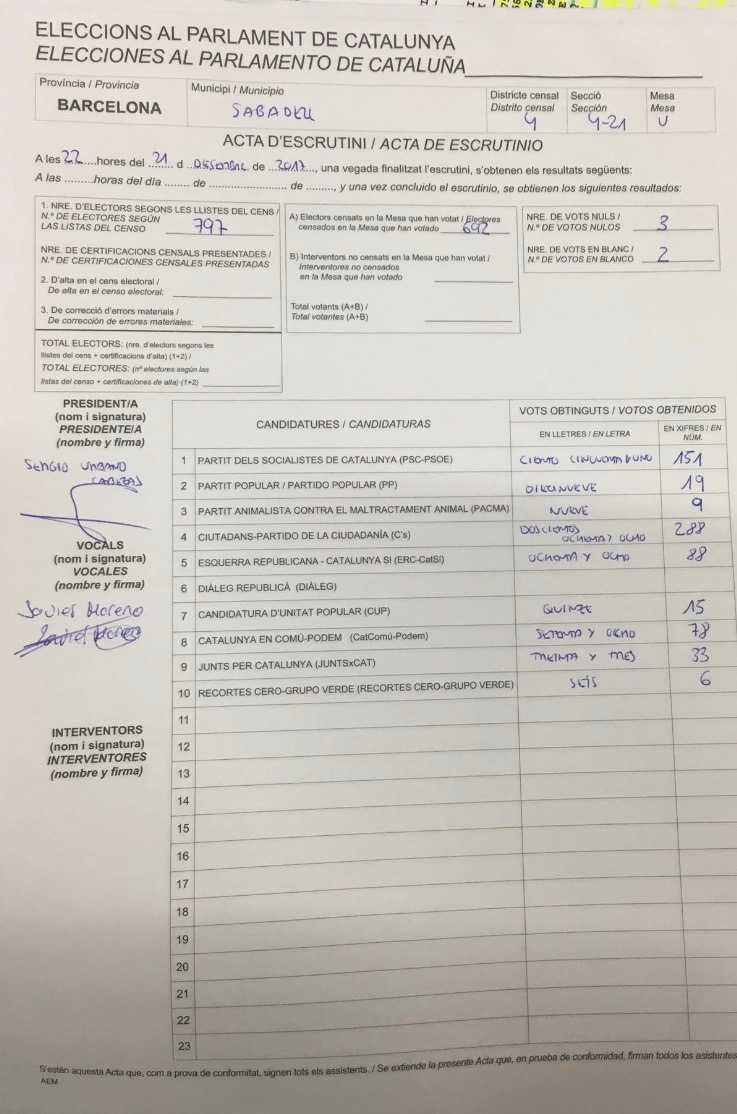 ELECCIONS AL PARLAMENT DE CATALUNYA
ELECCIONES AL PARLAMENTO DE CATALUÑA
Província / Provincia
BARCELONA
Municipi / Municipio
SABADELL
Districte censal
Distrito censal
4
Secció
Sección
4-21
Mesa
Mesa
U
ACTA D'ESCRUTINI / ACTA DE ESCRUTINIO
A les 22 hores del 21 d DESEMBRE de 2017, una vegada finalitzat l'escrutini, s'obtenen els resultats següents:
A las ......... horas del día ........ de .................... de ........, y una vez concluido el escrutinio, se obtienen los siguientes resultados:
1. NRE. D'ELECTORS SEGONS LES LLISTES DEL CENS /
N.º DE ELECTORES SEGÚN
LAS LISTAS DEL CENSO 797
NRE. DE CERTIFICACIONS CENSALS PRESENTADES /
N.º DE CERTIFICACIONES CENSALES PRESENTADAS
2. D'alta en el cens electoral /
De alta en el censo electoral:
3. De correcció d'errors materials /
De corrección de errores materiales:
TOTAL ELECTORS: (nre. d'electors segons les
llistes del cens + certificacions d'alta) (1+2) /
TOTAL ELECTORES: (nº electores según las
listas del censo + certificaciones de alta) (1+2)
A) Electors censats en la Mesa que han votat / Electores
censados en la Mesa que han votado 692
B) Interventors no censats en la Mesa que han votat /
Interventores no censados
en la Mesa que han votado
Total votants (A+B) /
Total votantes (A+B)
NRE. DE VOTS NULS /
N.º DE VOTOS NULOS 3
NRE. DE VOTS EN BLANC /
N.º DE VOTOS EN BLANCO 2
PRESIDENT/A
(nom i signatura)
PRESIDENTE/A
(nombre y firma)
SERGIO URBANO
CABEZAS
VOCALS
(nom i signatura)
VOCALES
(nombre y firma)
Javier Moreno
Javier Moreno
INTERVENTORS
(nom i signatura)
INTERVENTORES
(nombre y firma)
CANDIDATURES / CANDIDATURAS
VOTS OBTINGUTS / VOTOS OBTENIDOS
EN LLETRES / EN LETRA
EN XIFRES / EN NÚM.
1 PARTIT DELS SOCIALISTES DE CATALUNYA (PSC-PSOE) CIENTO CINCUENTA Y UNO 151
2 PARTIT POPULAR / PARTIDO POPULAR (PP) DIECINUEVE 19
3 PARTIT ANIMALISTA CONTRA EL MALTRACTAMENT ANIMAL (PACMA) NUEVE 9
4 CIUTADANS-PARTIDO DE LA CIUDADANÍA (C's) DOSCIENTOS OCHENTA Y OCHO 288
5 ESQUERRA REPUBLICANA - CATALUNYA SI (ERC-CatSí) OCHENTA Y OCHO 88
6 DIÀLEG REPUBLICÀ (DIÀLEG)
7 CANDIDATURA D'UNITAT POPULAR (CUP) QUINZE 15
8 CATALUNYA EN COMÚ-PODEM (CatComú-Podem) SETENTA Y OCHO 78
9 JUNTS PER CATALUNYA (JUNTSxCAT) TREINTA Y TRES 33
10 RECORTES CERO-GRUPO VERDE (RECORTES CERO-GRUPO VERDE) SEIS 6
11
12
13
14
15
16
17
18
19
20
21
22
23
S'estén aquesta Acta que, com a prova de conformitat, signen tots els assistents. / Se extiende la presente Acta que, en prueba de conformidad, firman todos los asistentes
AEM